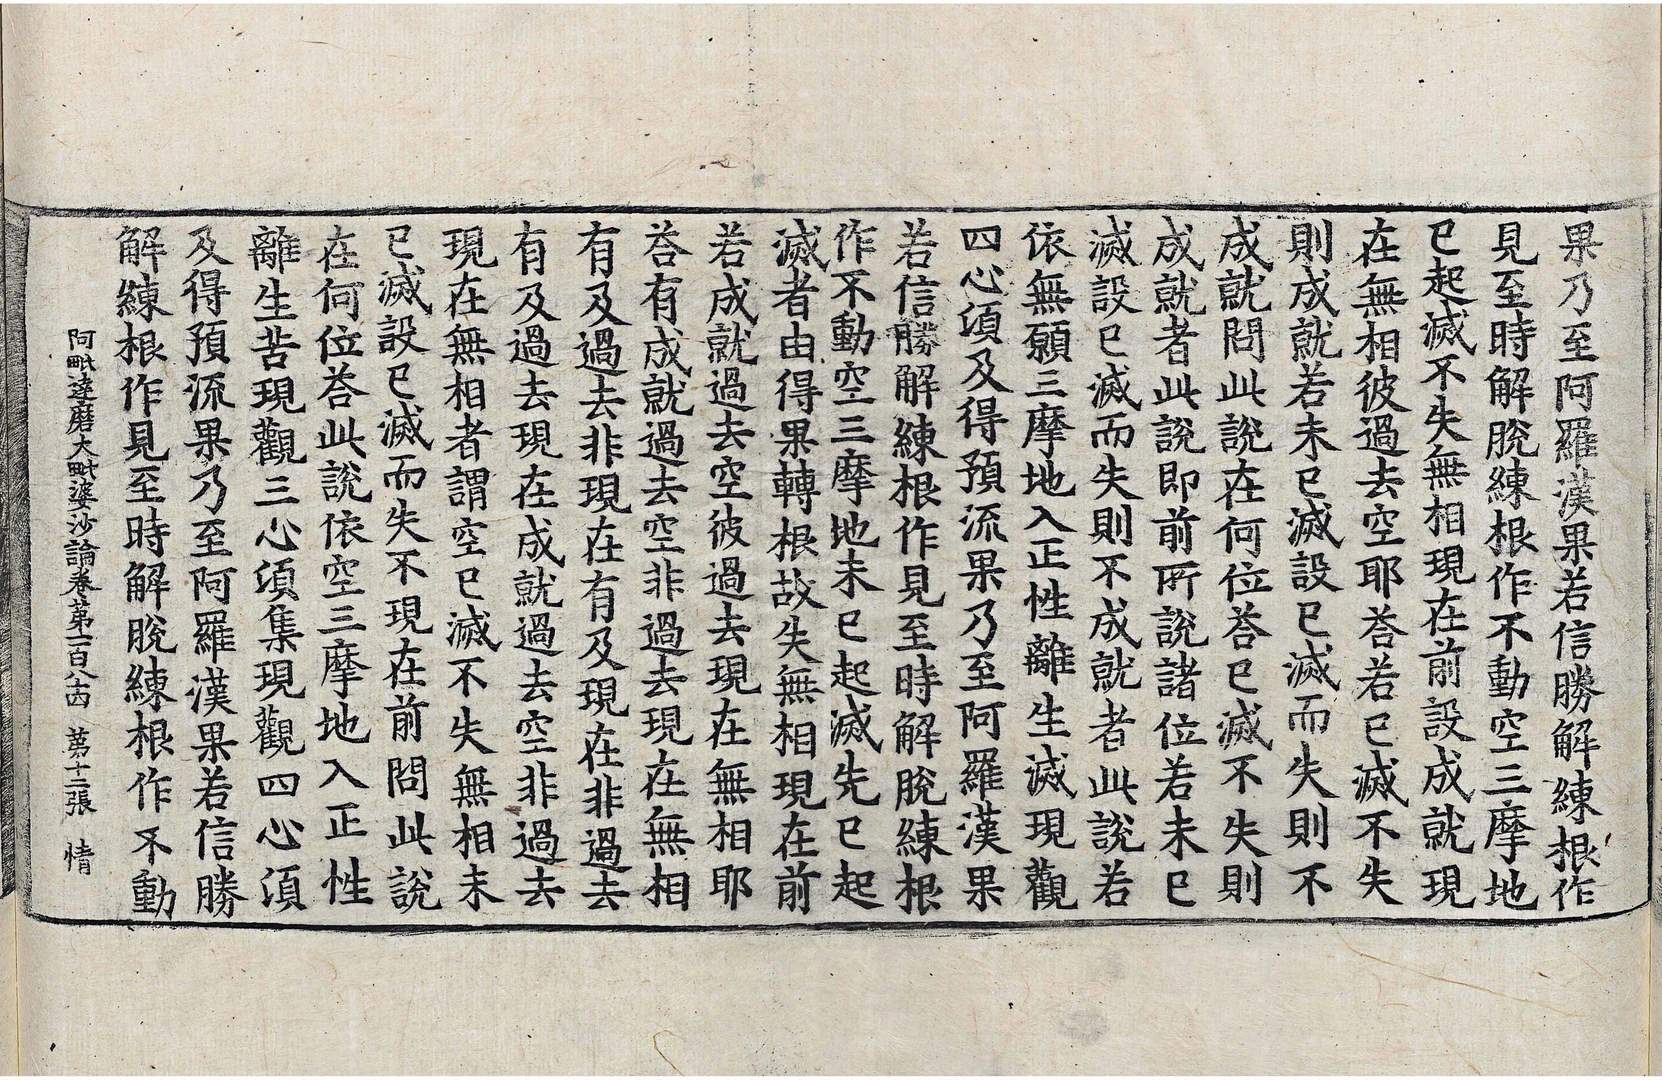 果乃至阿羅漢果若信勝解練根作
見至時解脫練根作不動空三摩地
已起滅不失無相現在前設成就現
在無相彼過去空耶荅若已滅不失
則成就若未已滅設已滅而失則不
成就問此說在何位荅已滅不失則
成就者此說即前所說諸位若未已
滅設已滅而失則不成就者此說若
依無願三摩地入正性離生滅現觀
四心湏及得預流果乃至阿羅漢果
若信勝解練根作見至時解脫練根
作不動空三摩地未已起滅先已起
滅者由得果轉根故失無相現在前
若成就過去空彼過去現在無相耶
荅有成就過去空非過去現在無相
有及過去非現在有及現在非過去
有及過去現在成就過去空非過去
現在無相者謂空已滅不失無相未
已滅設已滅而失不現在前問此說
在何位荅此說依空三摩地入正性
離生苦現觀三心湏集現觀四心湏
及得預流果乃至阿羅漢果若信勝
解練根作見至時解脫練根作不動
阿毗達磨大毗婆沙論卷第一百八十四 第十二張 情